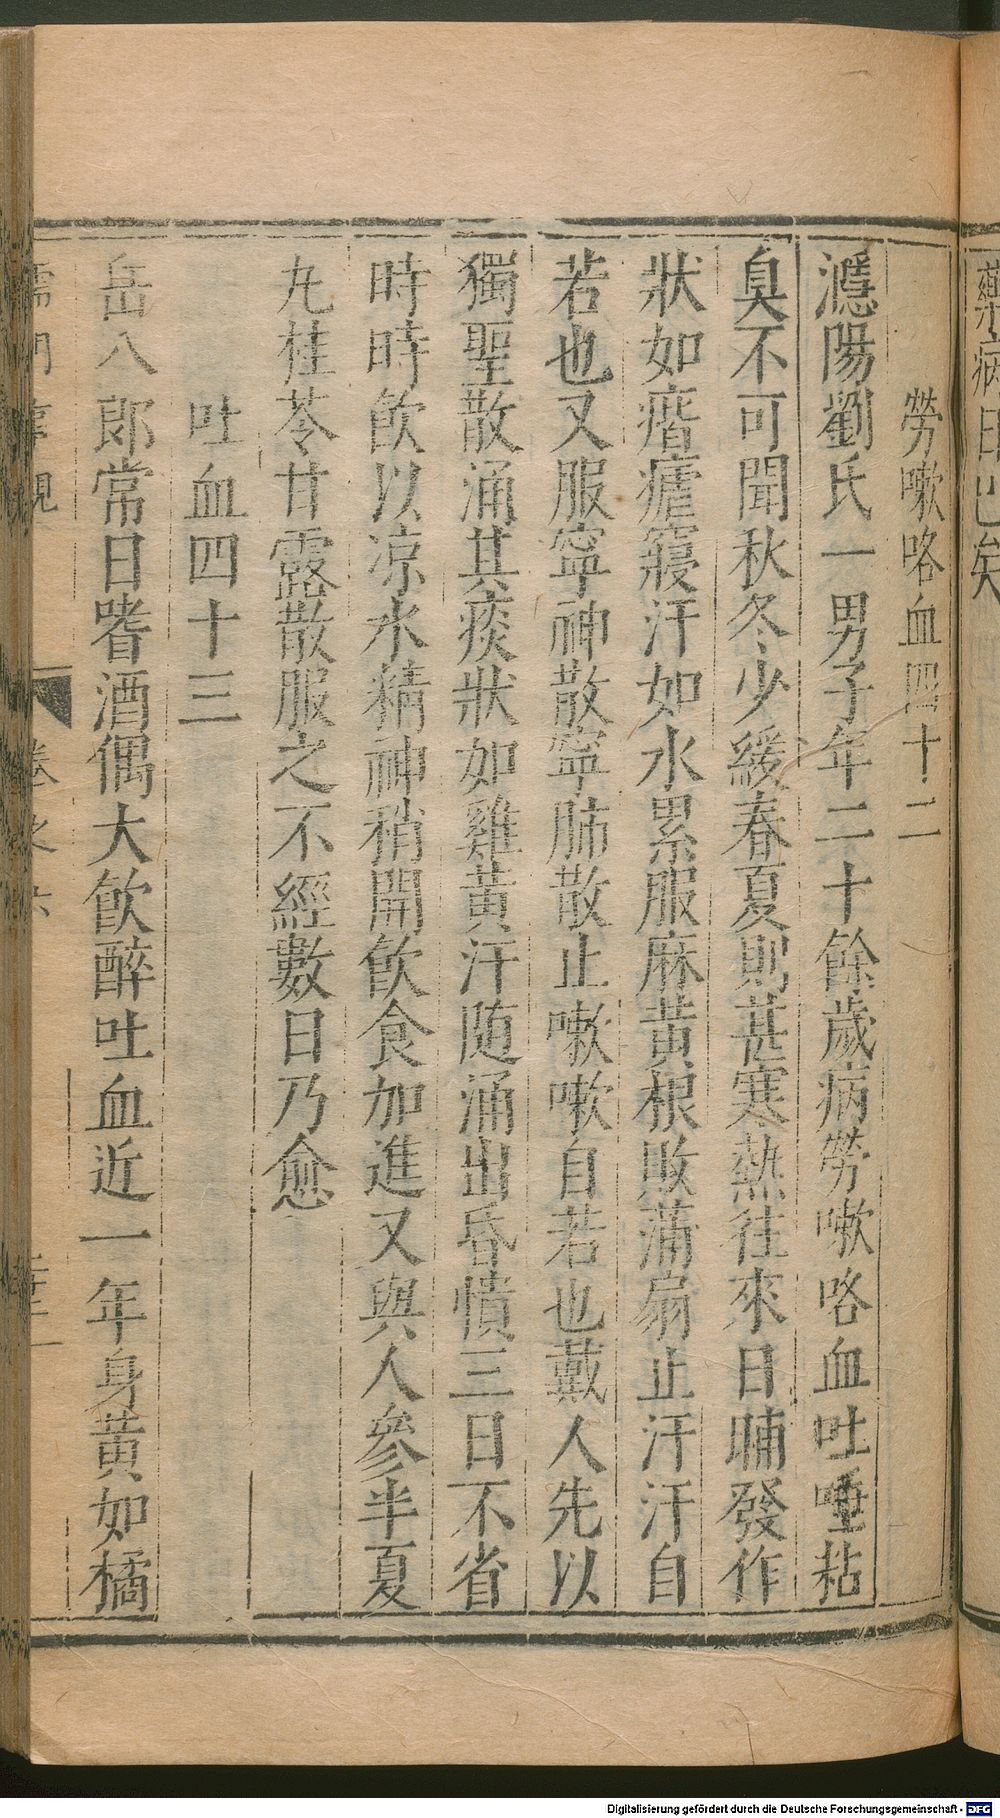 藥病日已矣
勞嗽咯血四十二
㶏陽劉氏一男子年二十餘歲病勞嗽咯血吐唾粘
臭不可聞秋冬少緩春夏則甚寒熱往來日晡發作
狀如痎瘧寢汗如水累服麻黃根敗蒲扇止汗汗自
若也又服寧神散寧肺散止嗽嗽自若也戴人先以
獨聖散涌其痰狀如雞黃汗随涌出昏憒三日不省
時時飲以凉水精神稍開飲食加進又與人參半夏
丸桂苓甘露散服之不經數日乃愈
吐血四十三
岳八郎常日嗜酒偶大飲醉吐血近一年身黃如橘
儒門事親 卷之六
Digitalisierung gefördert durch die Deutsche Forschungsgemeinschaft - DFG